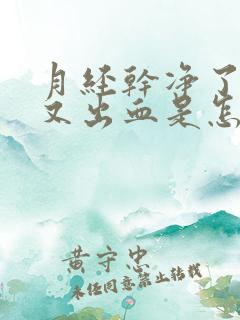 月经幹净了
又出血是怎
黄守忠
未经同意禁止转载